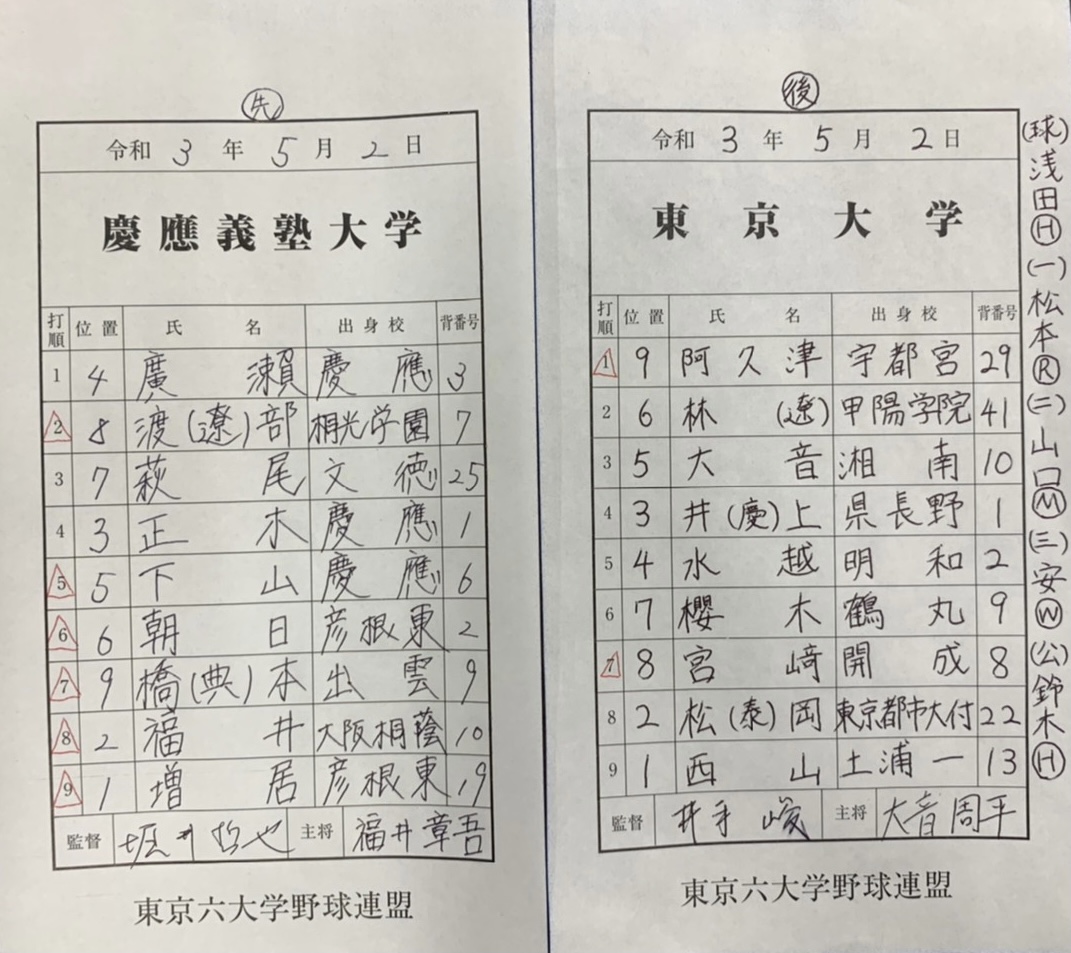 先
令和 3 年 5 月 2 日
慶應義塾大学
打順 位置 氏名 出身校 背番号
1 4 廣瀬 慶應 3
2 8 渡(遼)部 桐光学園 7
3 7 萩尾 文徳 25
4 3 正木 慶應 1
5 5 下山 慶應 6
6 6 朝日 彦根東 2
7 9 橋(典)本 出雲 9
8 2 福井 大阪桐蔭 10
9 1 増居 彦根東 19
監督 堀井哲也 主将 福井章吾
東京六大学野球連盟
後
令和 3 年 5 月 2 日
東京大学
打順 位置 氏名 出身校 背番号
1 9 阿久津 宇都宮 29
2 6 林(遼) 甲陽学院 41
3 5 大音 湘南 10
4 3 井(慶)上 県長野 1
5 4 水越 明和 2
6 7 櫻木 鶴丸 9
7 8 宮﨑 開成 8
8 2 松(泰)岡 東京都市大付 22
9 1 西山 土浦一 13
監督 井手峻 主将 大音周平
東京六大学野球連盟
(球)浅田Ⓗ(一)松本Ⓡ(二)山口Ⓜ(三)安Ⓦ(公)鈴木Ⓗ